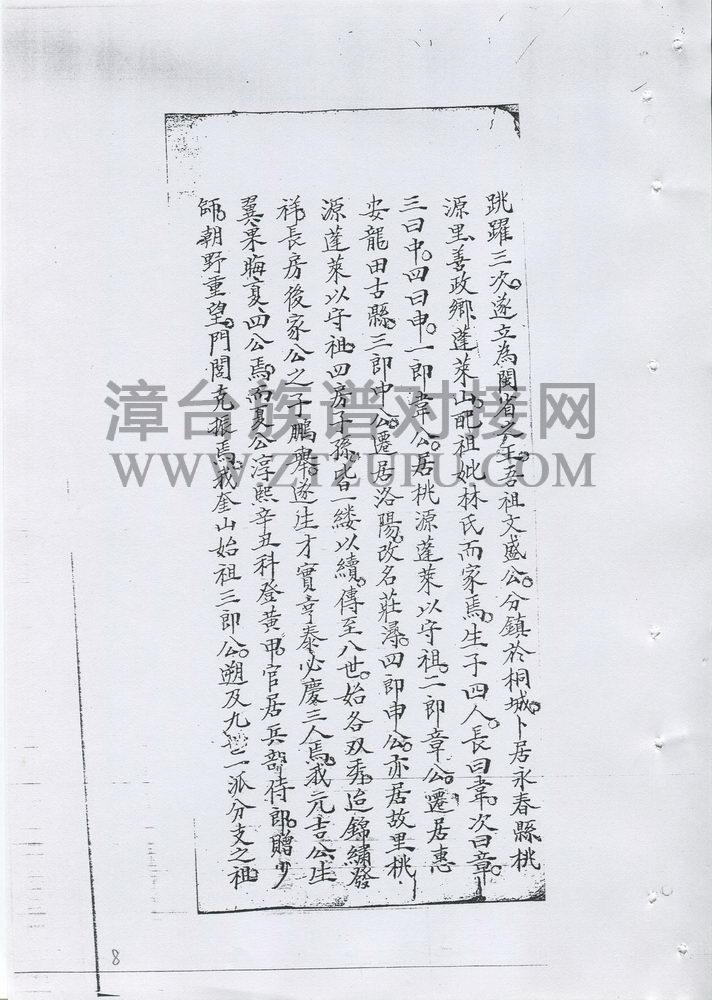 跳躍三次。遂立為閩省之王。吾祖文盛公。分鎮於桐城。卜居永春縣。桃
源里。善政鄉。蓬萊山。配祖妣林氏而家焉。生子四人。長曰韋。次曰章。
三曰中。四曰申。一郎韋公。居桃源蓬萊以守祖。二郎章公。遷居惠
安龍田古縣。三郎中公。遷居洛陽。改名莊潯。四郎申公。亦居故里桃
源蓬萊以守祖。四房子孫。皆一縷以續。傳至八世。始各双秀。迨錦繡發
祥。長房後家公之子鵬舉。遂生才實亨泰必慶三人焉。我元吉公。生
翼果晦夏。四公焉。而夏公淳熙辛丑科登黃甲。官居兵部侍郎。贈少
師。朝野重望。門閭克振焉。我奎山始祖三郎公。遡及九世一派分支之祖。
漳台族谱对接网
WWW.ZTZUPU.COM
8